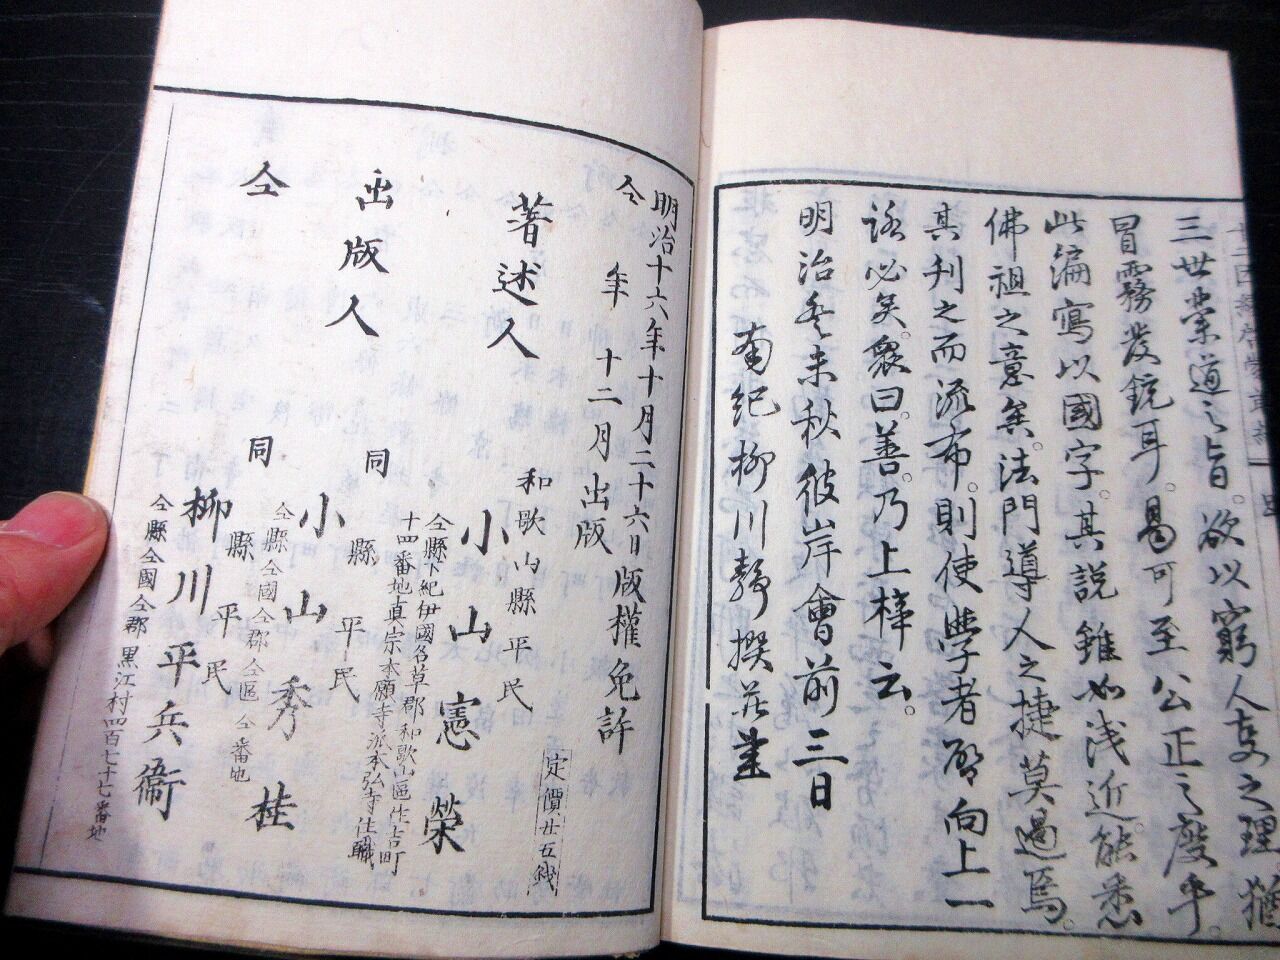 三世業道之旨。欲以窮人支之理。猶
冒霧發鏡耳。曷可至公正之度乎。
此編寫以國字。其説雖如浅近。能悉
佛祖之意矣。法門導人之捷莫過焉。
其刋之而流布。則使學者啓向上一
路必矣。衆曰。善。乃上梓云。
明治癸未秋彼岸會前三日
南紀柳川静撰并書
明治十六年十月二十六日版權免許
仝年十二月出版
定價廿五錢
和歌山縣平民
著述人 小山憲榮
仝縣下紀伊國名草郡和歌山區住吉町
十四番地真宗本願寺派本弘寺住職
同縣平民
出版人 小山秀桂
仝縣仝國仝郡仝區仝番地
同縣平民
仝 柳川平兵衞
仝縣仝國仝郡黒江村四百七十七番地